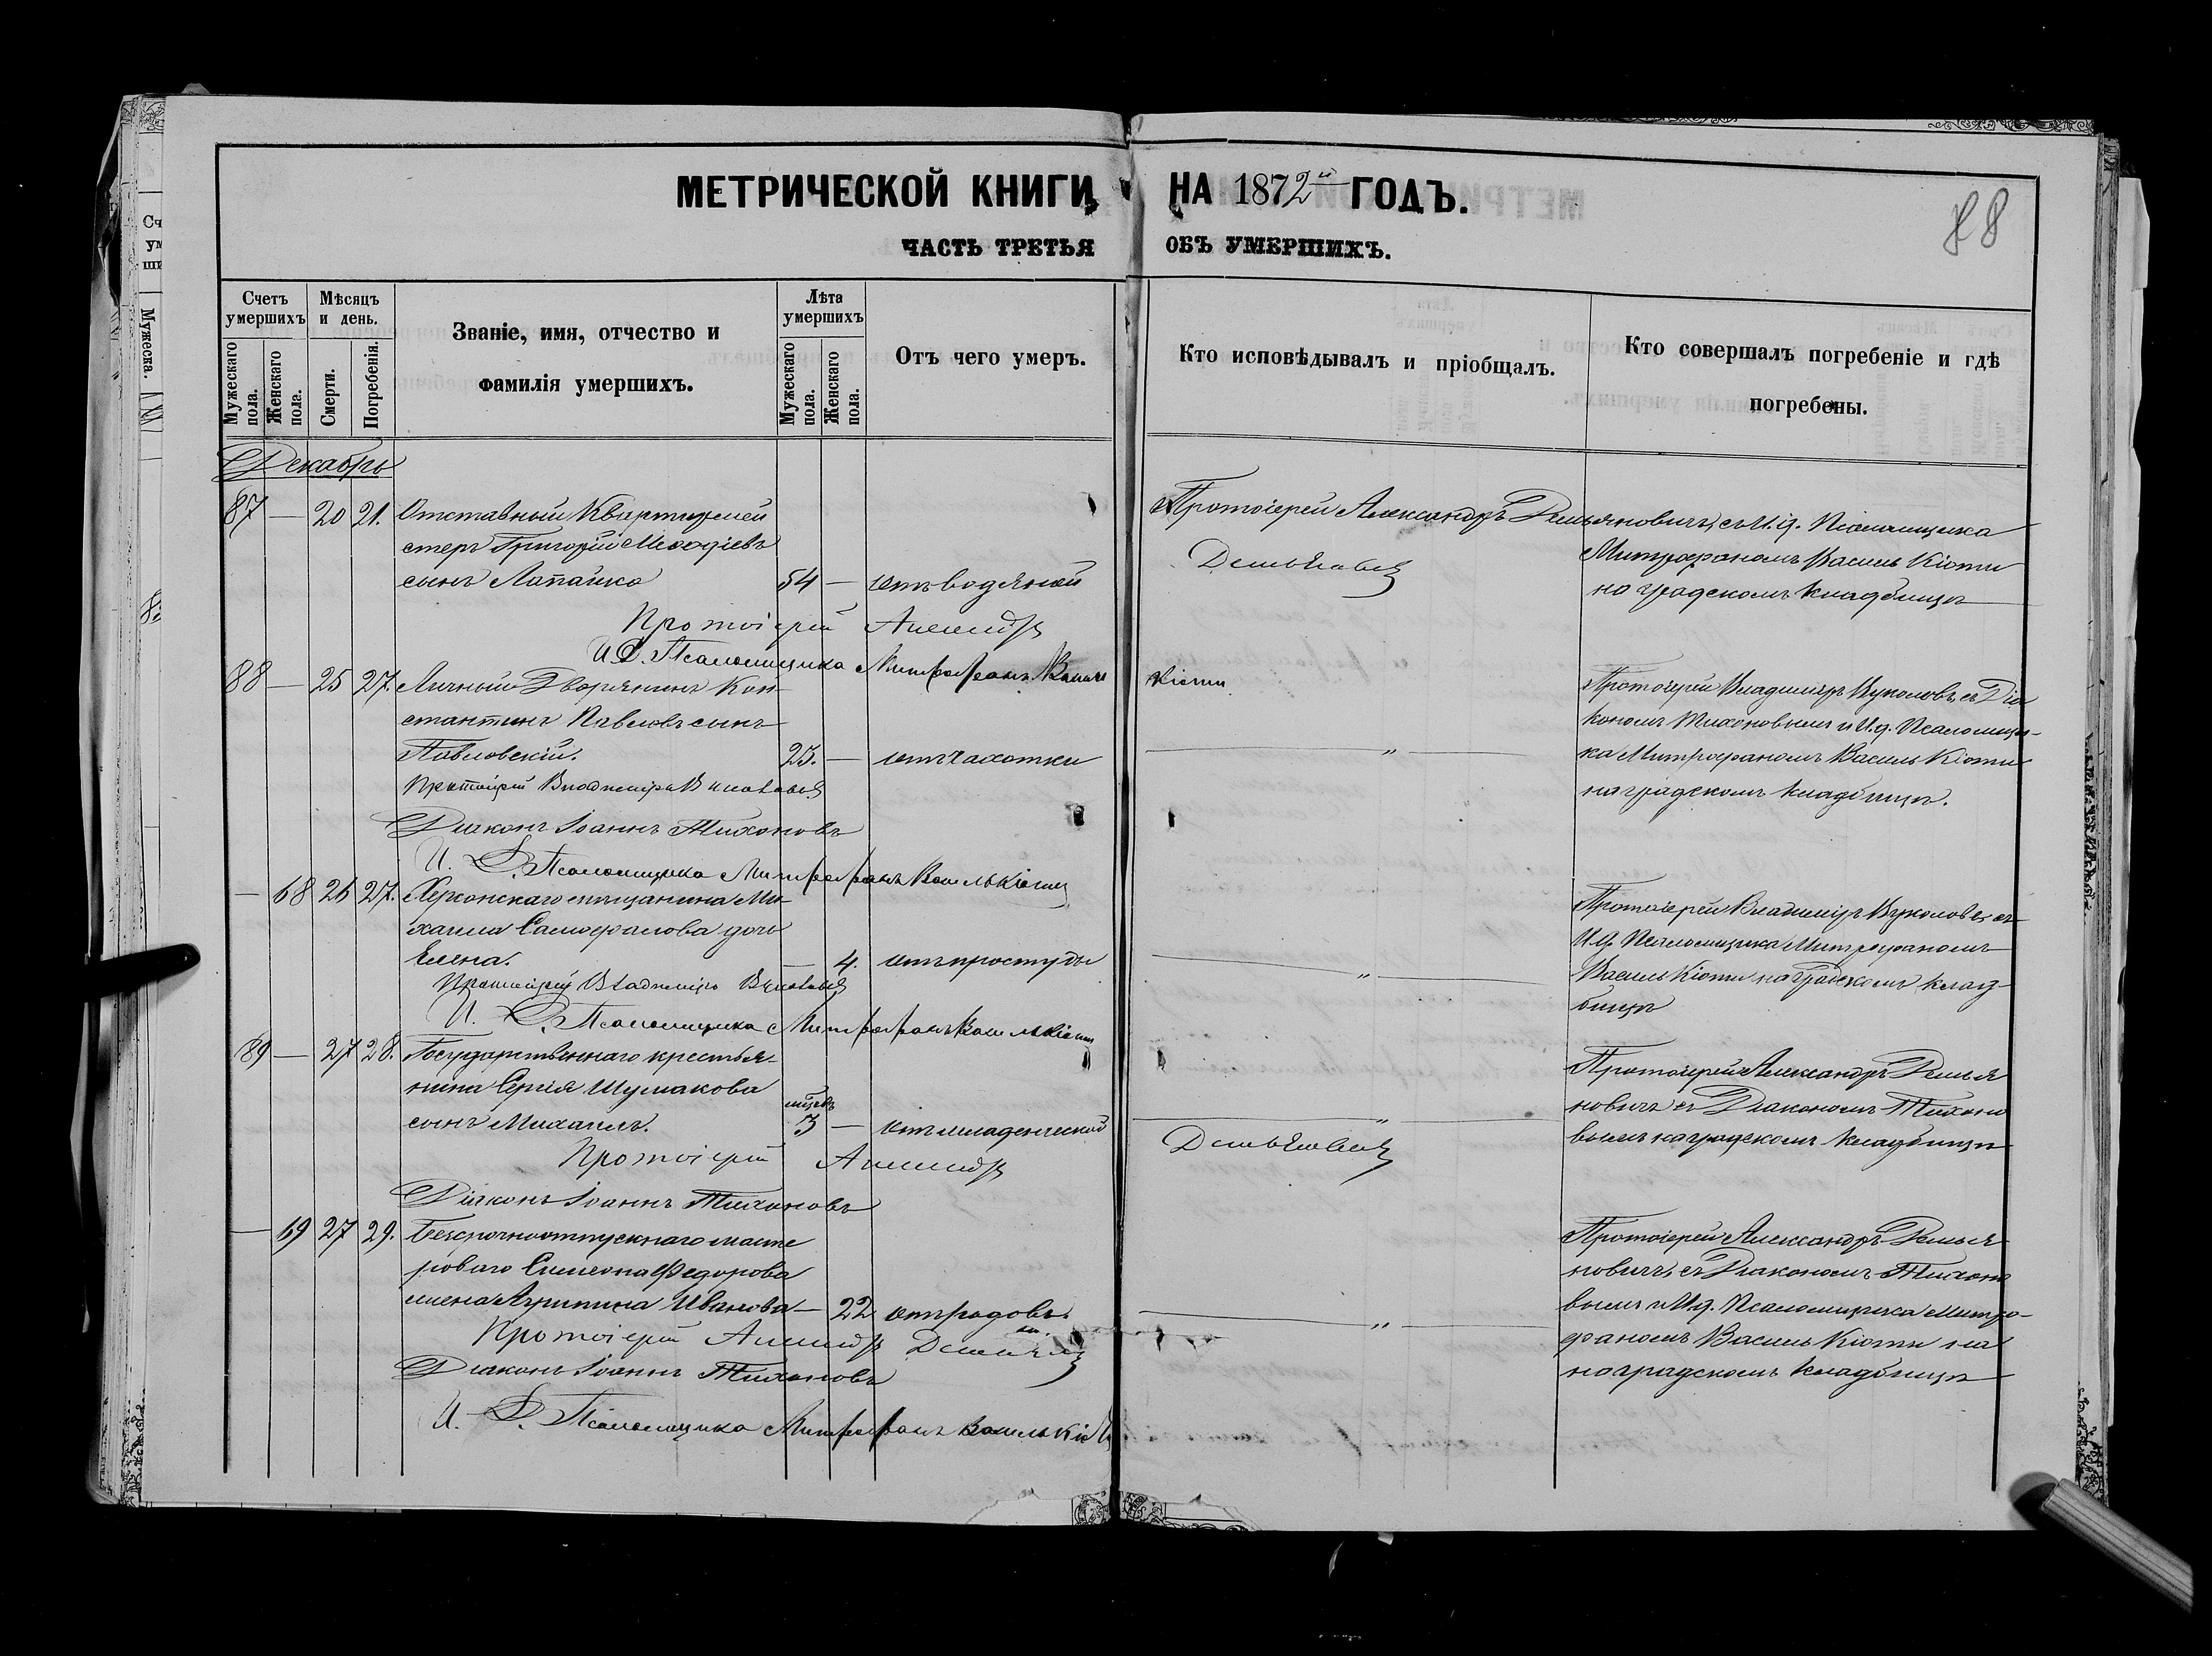 МЕТРИЧЕСКОЙ КНИГИ НА 1872й ГОДЪ.
88
ЧАСТЬ ТРЕТЬЯ ОБЪ УМЕРШИХЪ.
Счетъ умершихъ
Мужескаго пола.
Женскаго пола.
Мѣсяцъ и день.
Смерти.
Погребенія.
Званіе, имя, отчество и
фамилія умершихъ.
Лѣта умершихъ
Мужескаго пола.
Женскаго пола.
Отъ чего умеръ.
Кто исповѣдывалъ и пріобщалъ.
Кто совершалъ погребеніе и гдѣ
погребены.
Декабрь
87 — 20 21. Отставный Квартирмей
стеръ Григорій Меѳодіевъ
сынъ Лопайко 54 — отъ водяной
Протоіерей Александръ Демьяновичъ, съ И. д. Псаломщика
Митрофаномъ Василь Кіоти
на градскомъ кладбищѣ
Протоіерей Александръ Демьяновичъ
И. Д. Псаломщика Митрофанъ Василь Кіоти
88 — 25 27. Личный Дворянинъ Кон-
стантинъ Павловъ сынъ
Павловскій. 23. — отъ чахотки
— „ —
Протоіерей Владиміръ Вуколовъ, съ Діа
кономъ Тихоновымъ и И. д. Псаломщи-
ка Митрофаномъ Василь Кіоти
на градскомъ кладбищѣ.
Протоіерей Владиміръ Вуколовъ
Діаконъ Іоаннъ Тихоновъ
И. Д. Псаломщика Митрофанъ Василькіоти
— 68 26 27. Херсонскаго мѣщанина Ми-
хаила Самофалова дочь
Елена. — 4. отъ простуды
— „ —
Протоіерей Владиміръ Вуколовъ, съ
И. д. Псаломщика Митрофаномъ
Василь Кіоти на градскомъ клад-
бищѣ
Протоіерей Владиміръ Вуколовъ
И. Д. Псаломщика Митрофанъ Василькіоти
89 — 27 28. Государственнаго крестья-
нина Сергія Шумакова
сынъ Михаилъ. мѣсяц. 3 — отъ младенческой
— „ —
Протоіерей Александръ Демья
новичъ съ Діакономъ Тихоно
вымъ на градскомъ кладбищѣ
Протоіерей Александръ Демьяновичъ
Діаконъ Іоаннъ Тихоновъ
— 69 27 29. Безсрочноотпускнаго масте
роваго Симеона Федорова
жена Агрипина Иванова — 22 отъ родовъ.
— „ —
Протоіерей Александръ Демья-
новичъ, съ Діакономъ Тихоно
вымъ и И. д. Псаломщика Митро-
фаномъ Василь Кіоти на
на градскомъ кладбищѣ
Протоіерей Александръ Демьяновичъ
Діаконъ Іоаннъ Тихоновъ
И. Д. Псаломщика Митрофанъ Василькіоти